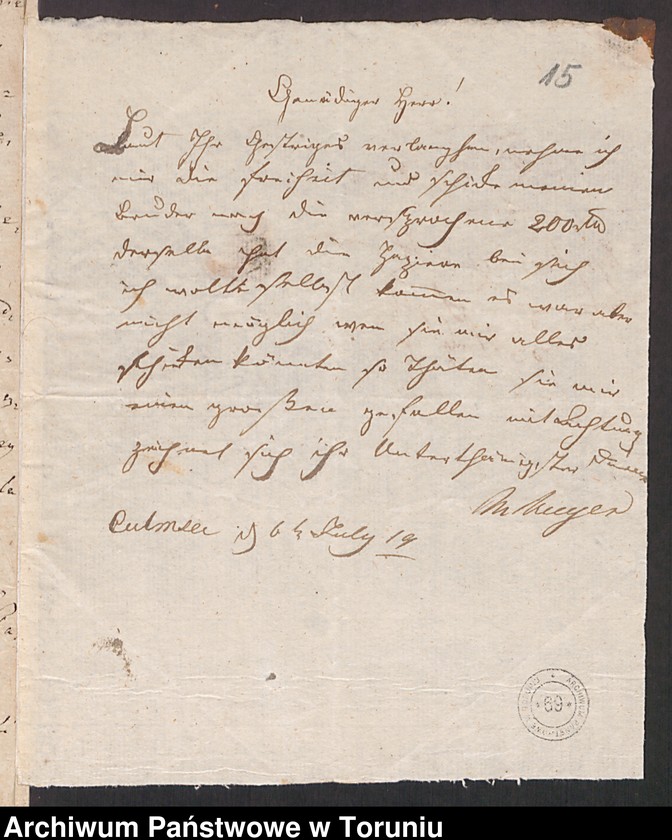 15
Genädiger Herr!
Laut Ihr Gestriges verlanghen, nehme ich
mir die freiheit und schicke meinen
Bruder nach die versprochene 200
derselbe hat die Papiere bei sich
ich wollte selbst kommen es war aber
nicht möglich wen sie mir alles
schicken könnten so thäten sie mir
einen großen gefallen mit Achtung
zeichnet sich ihr Unterthänigster
Culmsee d 6t July 19
69
Archiwum Państwowe w Toruniu